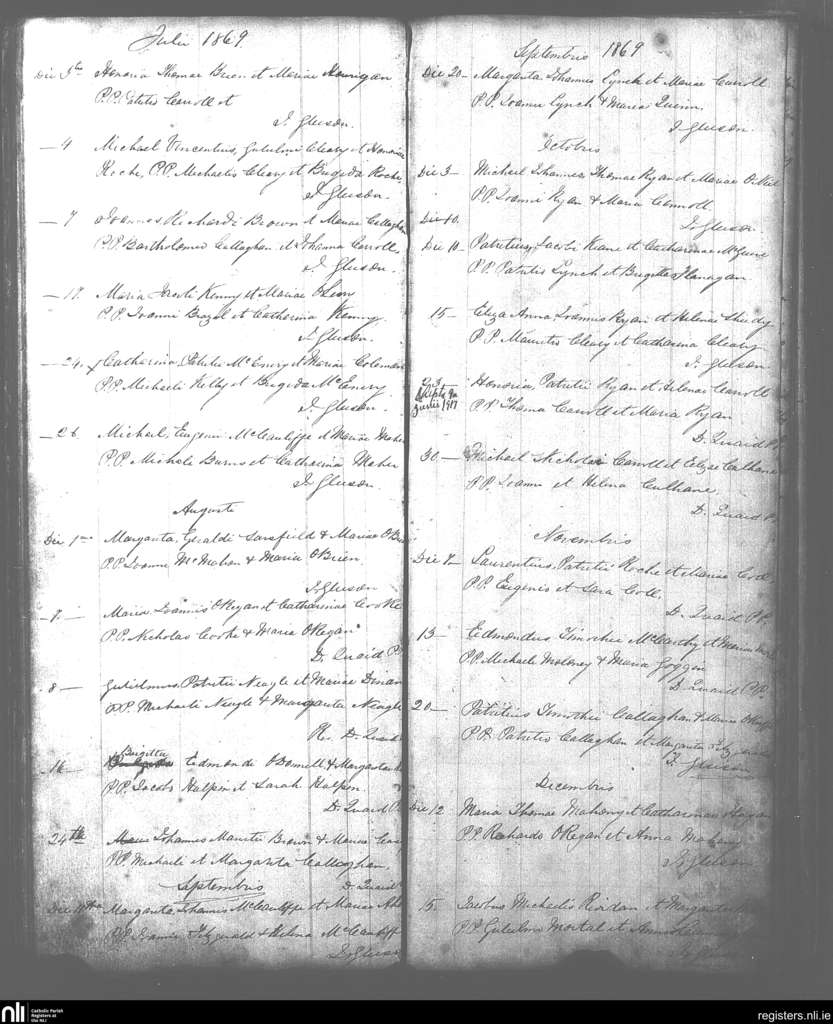 Julii 1869.
Die 5th Honoria Thomae Brien et Mariae Hourigan
P.P. Patritio Carroll et
J. Gleeson.
— 4 Michael Vincentius, Gulielmi Cleary et Honoriae
Roche, P.P. Michaelis Cleary et Brigida Roche
J. Gleeson.
— 7 Joannes Richardi Brown et Mariae Callaghan
P.P. Bartholomeo Callaghan et Johanna Carroll
J. Gleeson.
— 17. Maria Jacobi Kenny et Mariae
P.P. Joanni et Catharina Kenny.
J. Gleeson.
— 24. x Catharina, Patritii McEnery et Mariae Coleman
P.P. Michaeli Kelly et Brigida McEnery
J. Gleeson.
— 26 Michael, Eugenii McCauliffe et Mariae Maher
P.P. Michale Burns et Catharina Maher
J. Gleeson.
Augusti
Die 1ma Margarita, Geraldi Sarsfield & Mariae OBrien
P.P. Joanni McMahon & Maria OBrien.
J. Gleeson
— 7. — Maria Joannis O'Regan et Catharinae Cooke
P.P. Nicholas Cooke & Maria O'Regan
D. Quaid P.
8 — Gulielmus, Patritii Neagle et Mariae
P.P. Michaeli Neagle & Margarita Neagle
D. Quaid
16 — Brigitta Edmondi ODonnell & Margaritae
P.P. Jacobo Halpin et Sarah Halpin.
D. Quaid P.
24th Johannes Mauritii Brown & Mariae
P.P. Michaele et Margarita Callaghan.
D. Quaid
Septembris
Die Margarita, Johannis McCauliffe et Mariae
P.P. Joanni Fitzgerald & Helena McCauliff
J. Gleeson
Septembris 1869
Die 20 — Margarita Johannis Lynch et Mariae Carroll
P.P. Joanni Lynch & Maria Quinn.
J. Gleeson.
Octobris
Die 3 — Michael Johannes Thomae Ryan et Mariae O'Neil
P.P. Joanni Ryan & Maria Connoll
J. Gleeson.
Die 10.
Die 10 — Patritius, Jacobi Keane et Catharinae McGuire
P.P. Patritio Lynch et Brigitta Flanagan.
15 — Eliza Anna Joannis Ryan et Helenae Sheedy
P.P. Mauritio Cleary et Catharina Cleary.
J. Gleeson
Honoria, Patritii Ryan et Helenae Carroll
1917
P.P. Thoma Carroll et Maria Ryan
D. Quaid P.P.
30 — Michael Nicholai Carroll et Elizae Culhane
P.P. Joanni et Helena Culhane.
D. Quaid P.
Novembris
Die 7 — Laurentius, Patritii Roche et Mariae Coll.
P.P. Eugenio et Sara Coll.
D. Quaid P.P.
13 — Edmondus Timothei McCarthy et Mariae
P.P. Michaele Moloney & Maria Goggin
D Quaid P.P.
20 — Patritius Timothei Callaghan & Mariae
P.P. Patritio Callaghan et Margarita Fitzgerald
J. Gleeson
Decembris
Die 12 Maria Thomae Mahony et Catharinae
P.P. Richardo O'Regan et Anna Mahony
J. Gleeson
15. Jacobus Michaelis Riordan et Margaritae
P.P. Gulielmo et Anna
J. Gleeson
nli
Catholic Parish
Registers at
the NLI
registers.nli.ie